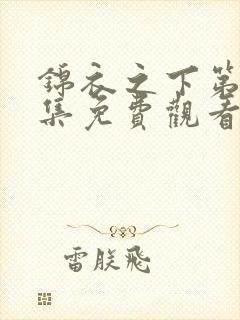 錦衣之下第
集免費觀看
雷朕飛